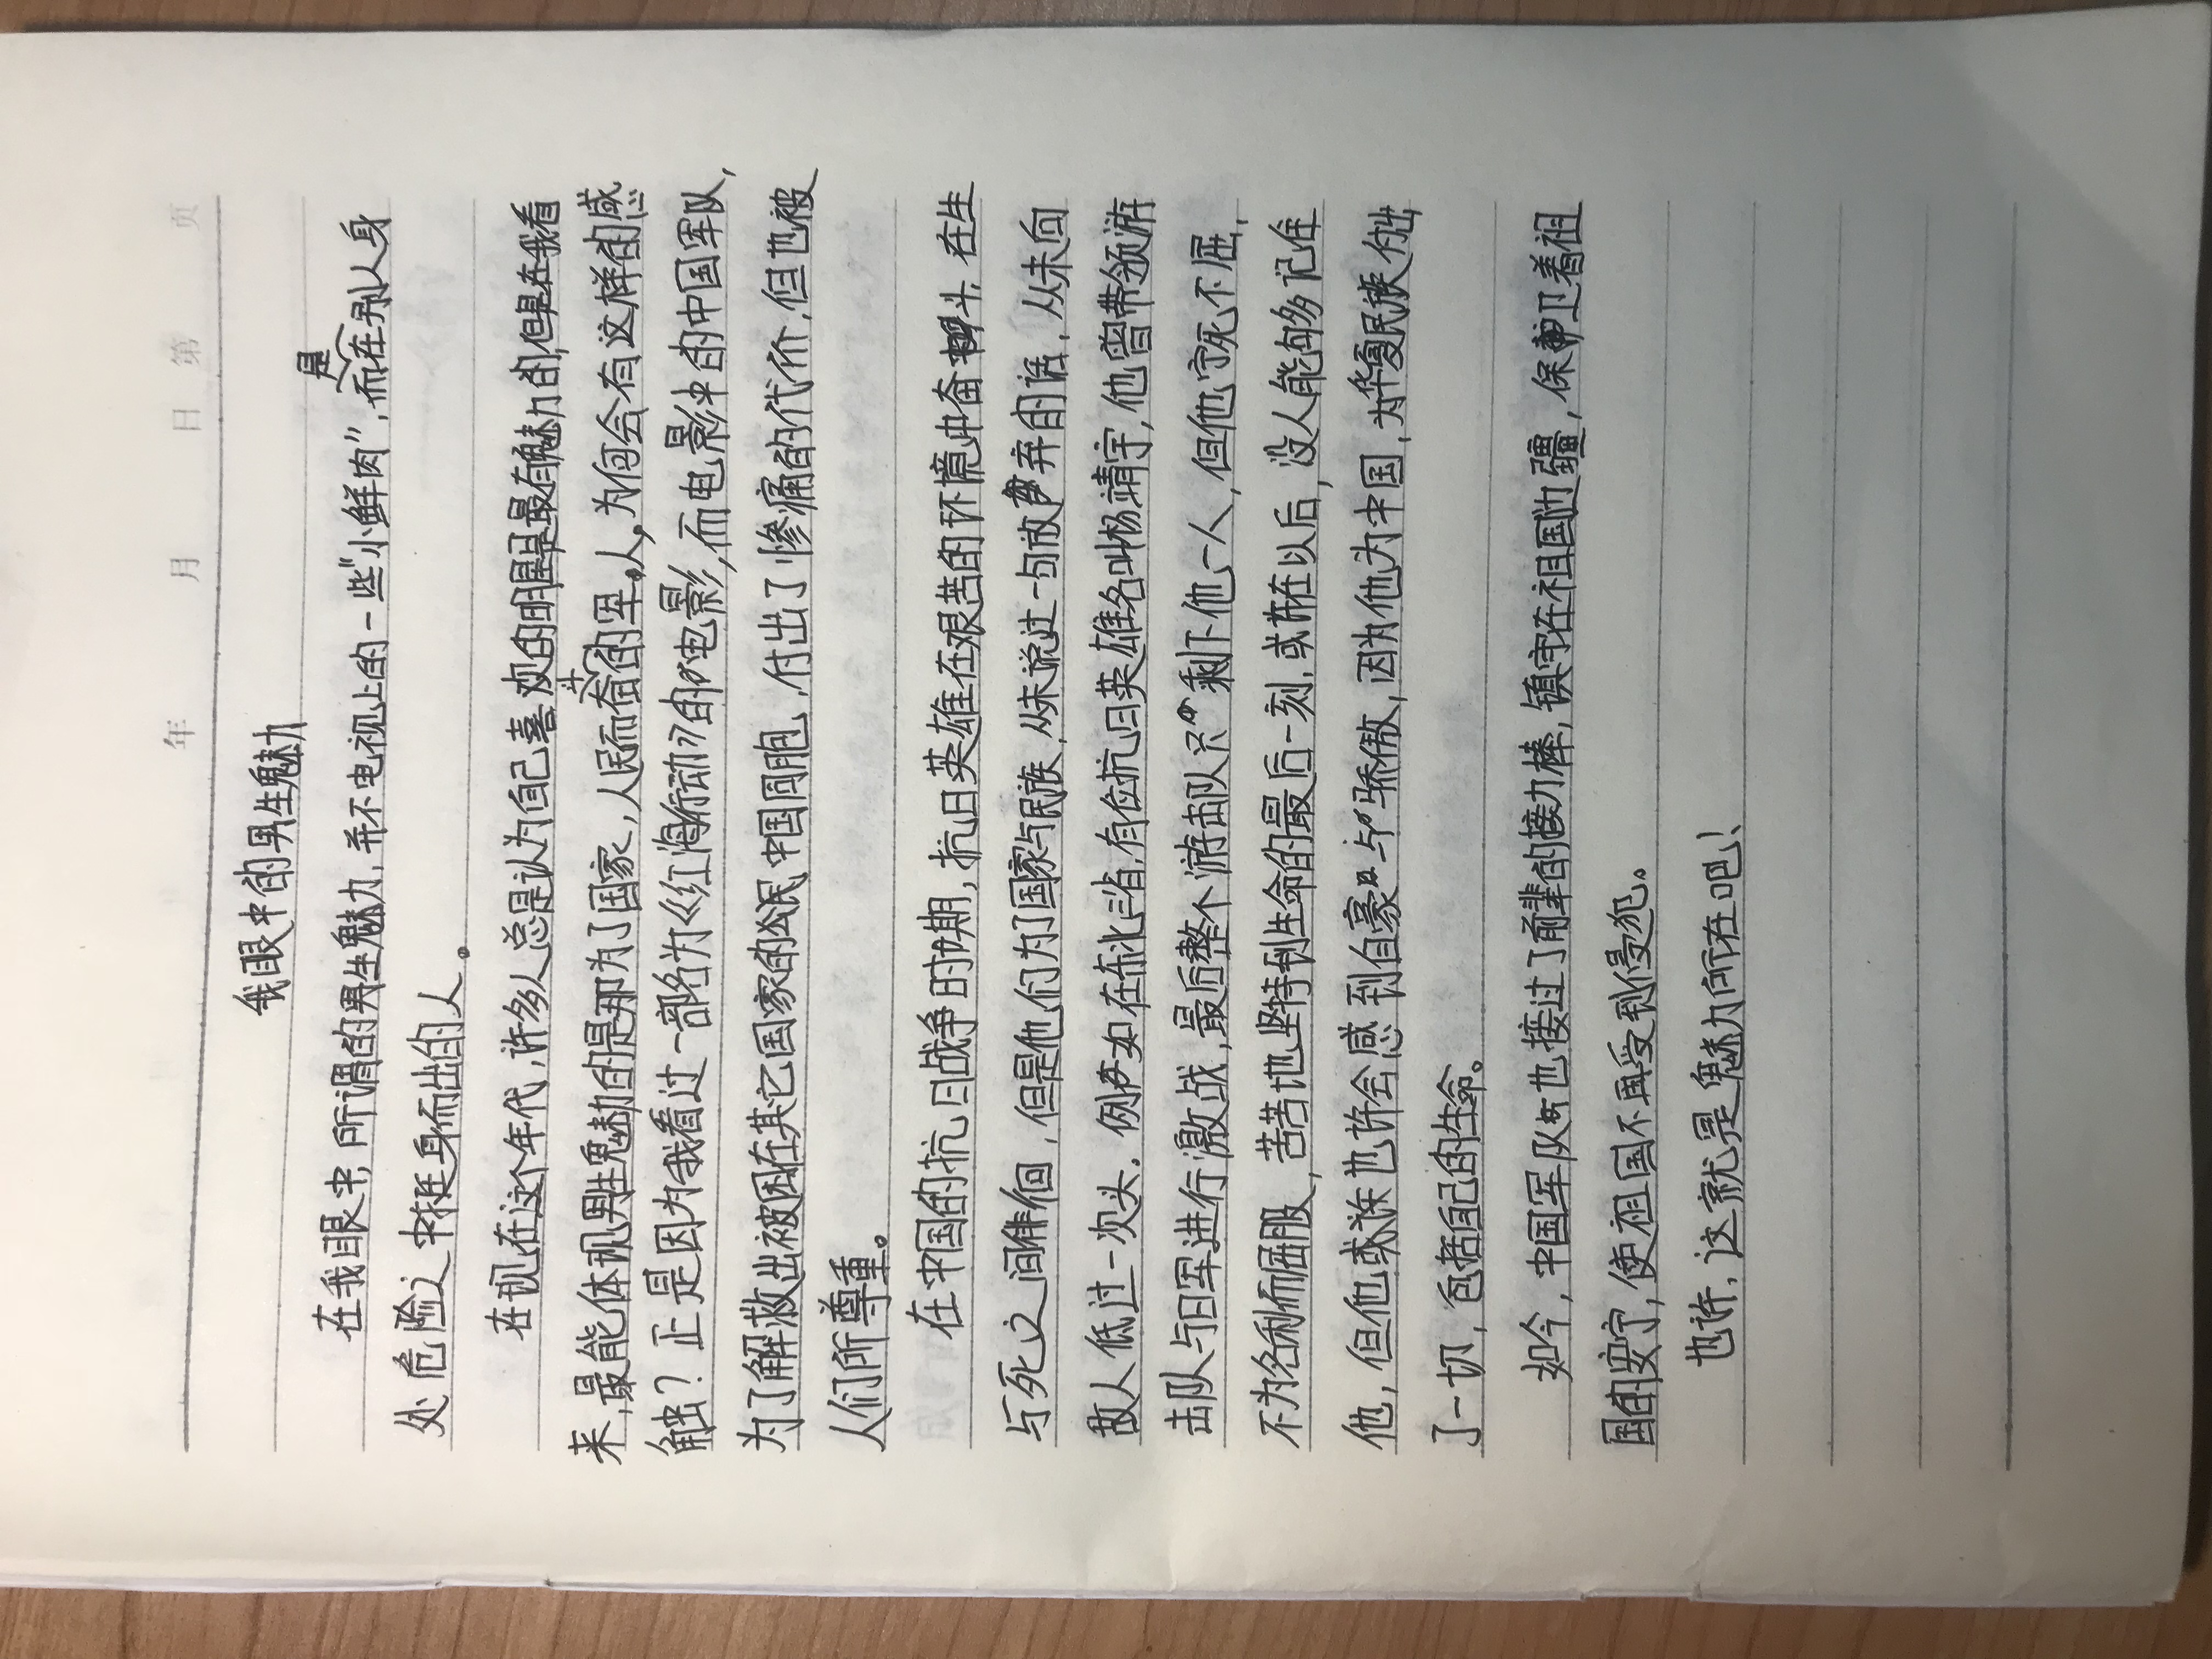 年 月 日 第 页
我眼中的男生魅力
在我眼中,所谓的男生魅力,并不电视上的一些“小鲜肉”,而是在别人身
处危险之中挺身而出的人。
在现在这个年代,许多人总是认为自己喜欢的明星是最有魅力的,但是在我看
来,最能体现男性魅力的是那为了国家,人民而奋斗的军人,为何会有这样的感
触?正是因为我看过一部名为《红海行动》的电影,而电影中的中国军队,
为了解救出被困在其它国家的公民中国同胞,付出了惨痛的代价,但也被
人们所尊重。
在中国的抗日战争时期,抗日英雄在艰苦的环境中奋斗,在生
与死之间徘徊,但是他们为了国家与民族,从未说过一句放弃的话,从未向
敌人低过一次头。例如在东北三省,有位抗日英雄名叫杨靖宇,他曾带领游
击队与日军进行激战,最后整个游击队只剩下他一人,但他宁死不屈,
不为名利而屈服,苦苦地坚持到生命的最后一刻,或许在以后,没人能够记住
他,但他或许也许会感到自豪与骄傲,因为他为中国,为华夏民族付出
了一切,包括自己的生命。
如今,中国军队也接过了前辈的接力棒,镇守在祖国边疆,保卫着祖
国的安宁,使祖国不再受到侵犯。
也许,这就是魅力所在吧!